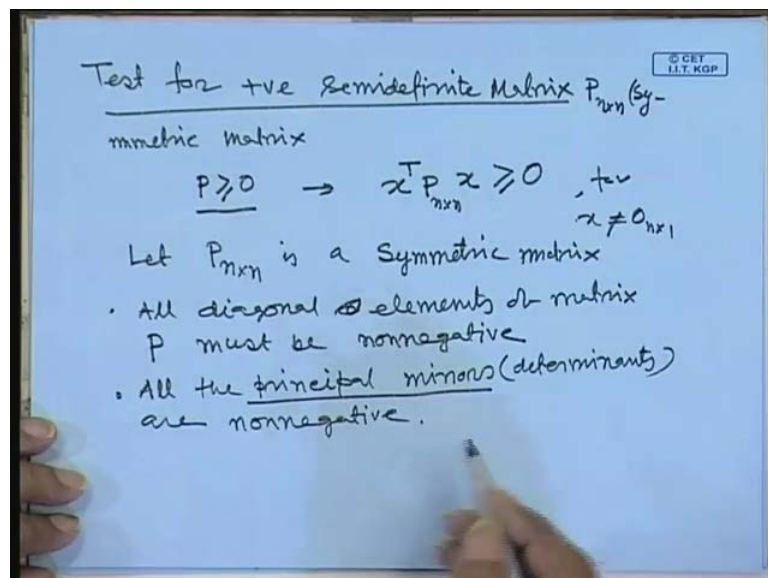 © CET
I.I.T. KGP
Test for +ve Semidefinite Matrix P_{n×n} (Sy-
mmetric matrix
P ≥ 0 → x^T P_{n×n} x ≥ 0 , for
x ≠ 0_{n×1}
Let P_{n×n} is a Symmetric matrix
• All diagonal elements of matrix
P must be nonnegative
• All the principal minors (determinants)
are nonnegative.